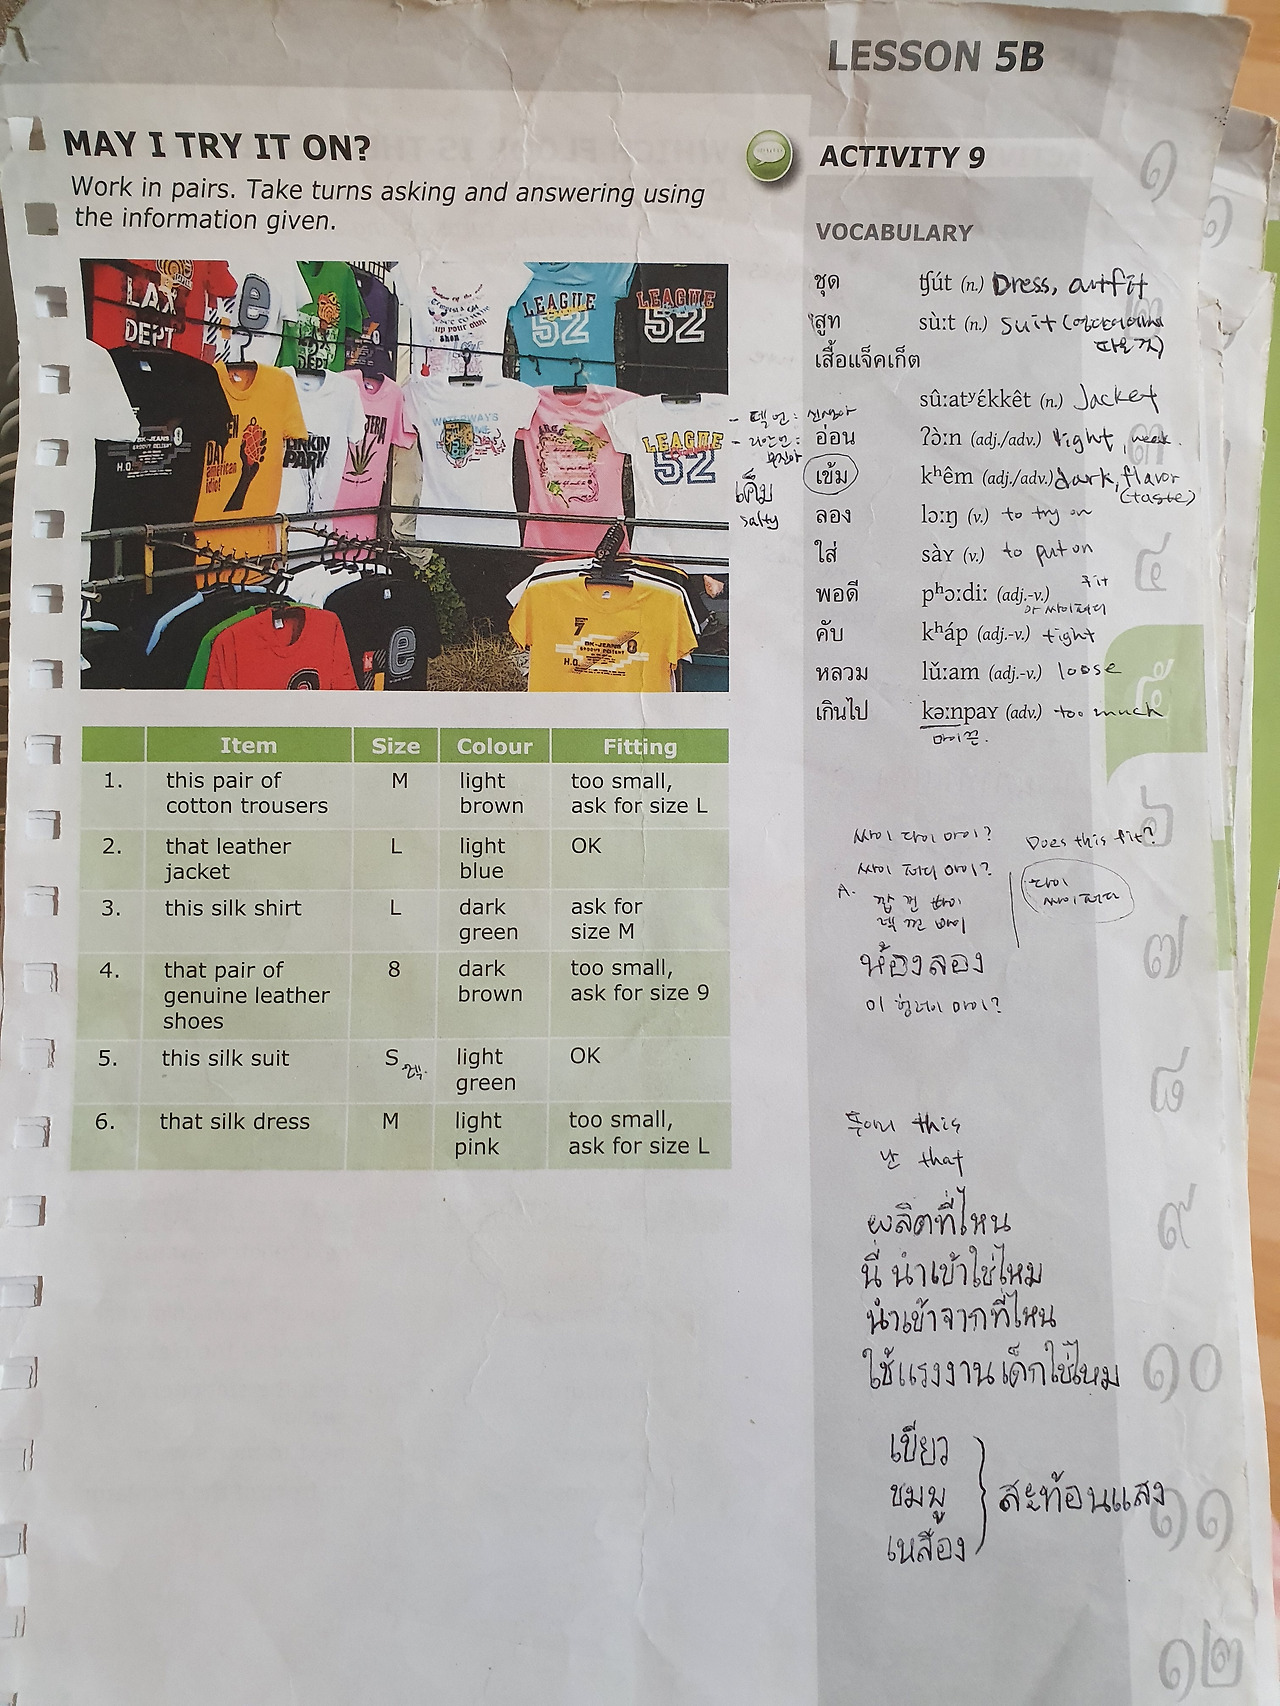 LESSON 5B
MAY I TRY IT ON?
Work in pairs. Take turns asking and answering using
the information given.
ACTIVITY 9
VOCABULARY
ชุด ʧút (n.) Dress, outfit
สูท sùːt (n.) suit
เสื้อแจ็คเก็ต
sûːatʸékkêt (n.) Jacket
อ่อน ʔɔ̀ːn (adj./adv.) light, weak.
เข้ม kʰêm (adj./adv.) dark, flavor
(taste)
ลอง lɔːŋ (v.) to try on
ใส่ sàɤ (v.) to put on
พอดี pʰɔːdiː (adj.-v.) fit
คับ kʰáp (adj.-v.) tight
หลวม lǔːam (adj.-v.) loose
เกินไป kəːnpaɤ (adv.) too much
เค็ม
salty
LAX
DEPT
e
LEAGUE
52
LEAGUE
52
DAY
american
idiot
LINKIN
PARK
WATERWAYS
LEAGUE
52
OK-JEANS
H.O.
7
OK-JEANS
H.O.
e
Item Size Colour Fitting
1. this pair of cotton trousers M light brown too small, ask for size L
2. that leather jacket L light blue OK
3. this silk shirt L dark green ask for size M
4. that pair of genuine leather shoes 8 dark brown too small, ask for size 9
5. this silk suit S 엣. light green OK
6. that silk dress M light pink too small, ask for size L
싸이 다이 마이? Does this fit?
싸이 퍼디 마이?
A.
다이
싸이 퍼디
ห้องลอง
this
난 that
ผลิตที่ไหน
นี่ นำเข้าใช่ไหม
นำเข้าจากที่ไหน
ใช้แรงงานเด็กใช่ไหม
เขียว
ชมพู
เหลือง
สะท้อนแสง
๑
๒
๓
๔
๕
๖
๗
๘
๙
๑๐
๑๑
๑๒